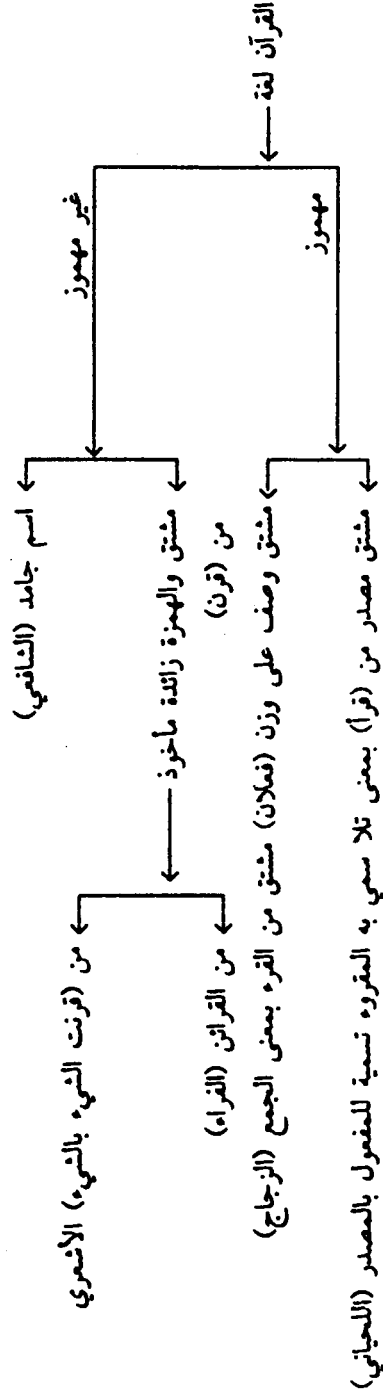 القرآن لغة
مهموز
غير مهموز
مشتق مصدر من (قرأ) بمعنى تلا سمي به المقروء تسمية للمفعول بالمصدر (اللحياني)
مشتق وصف على وزن (فعلان) مشتق من القرء بمعنى الجمع (الزجاج)
مشتق والهمزة زائدة مأخوذ
من (قرن)
اسم جامد (الشافعي)
من القرائن (الفراء)
من (قرنت الشيء بالشيء) الأشعري